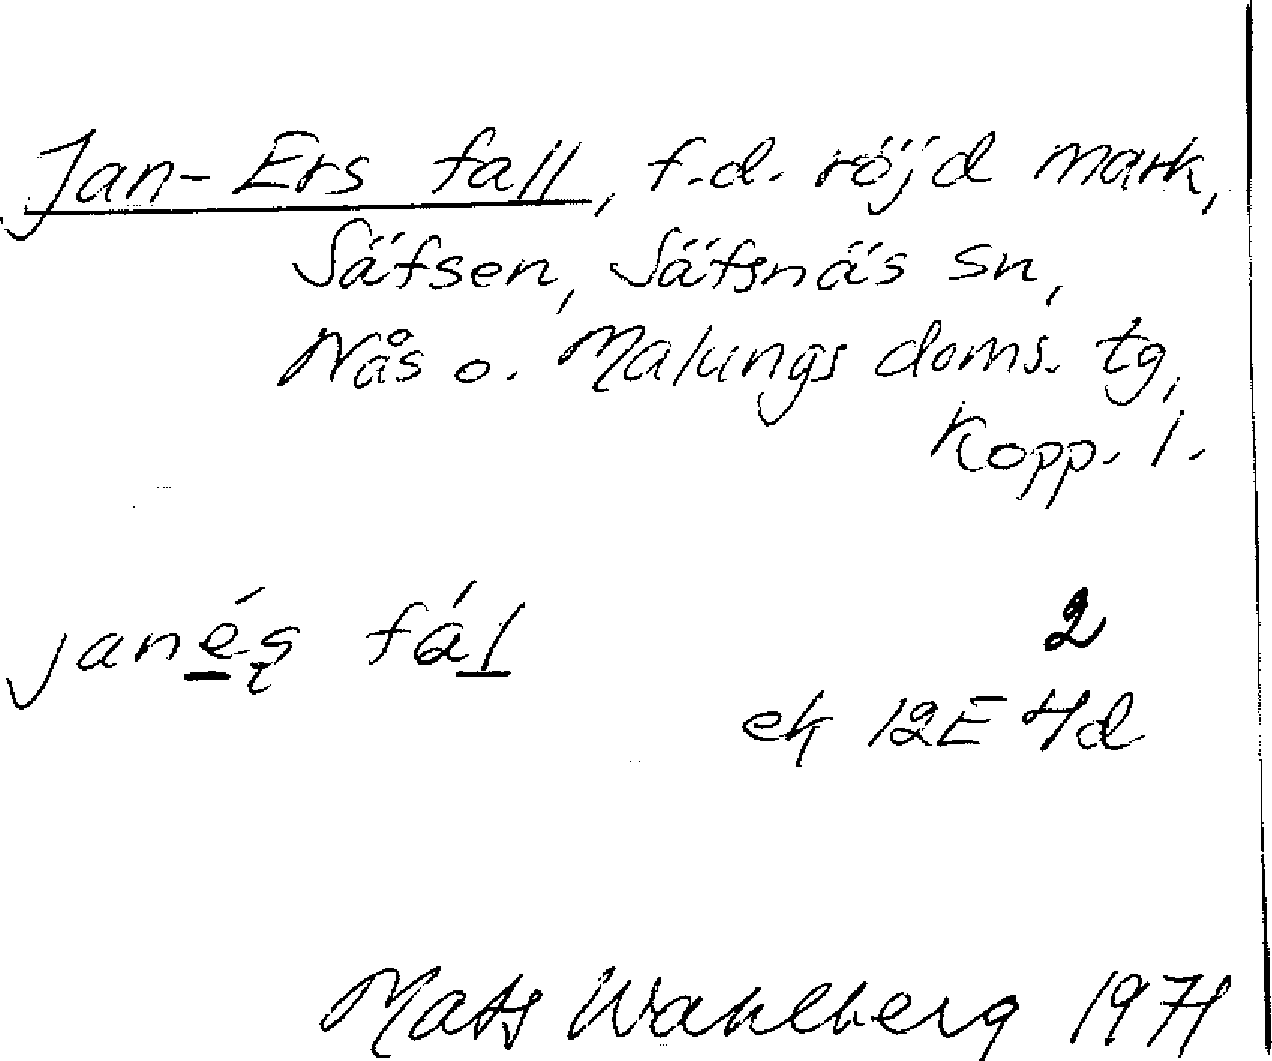 Jan-Ers fall, f.d. röjd mark,
Säfsen, Säfsnäs sn,
Nås o. Malungs doms. tg,
Kopp. l.
fáḻ
2
ek 12E 4d
Mats Wahlberg 1971